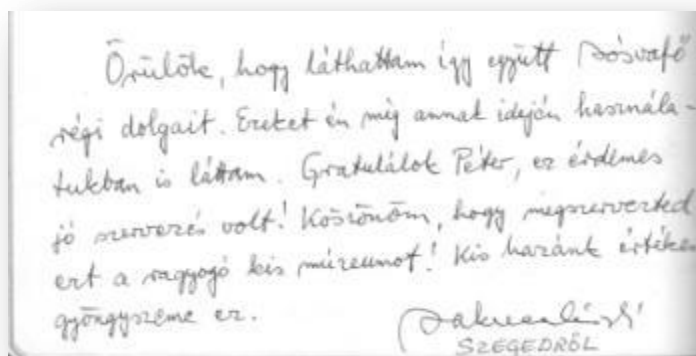 Örülök, hogy láthattam így együtt Jósvafő
régi dolgait. Ezeket én még annak idején használa-
tukban is láttam. Gratulálok Péter, ez érdemes
jó szervezés volt! Köszönöm, hogy megszervezted
ezt a ragyogó kis múzeumot! Kis hazánk értékes
gyöngyszeme ez.
SZEGEDRŐL